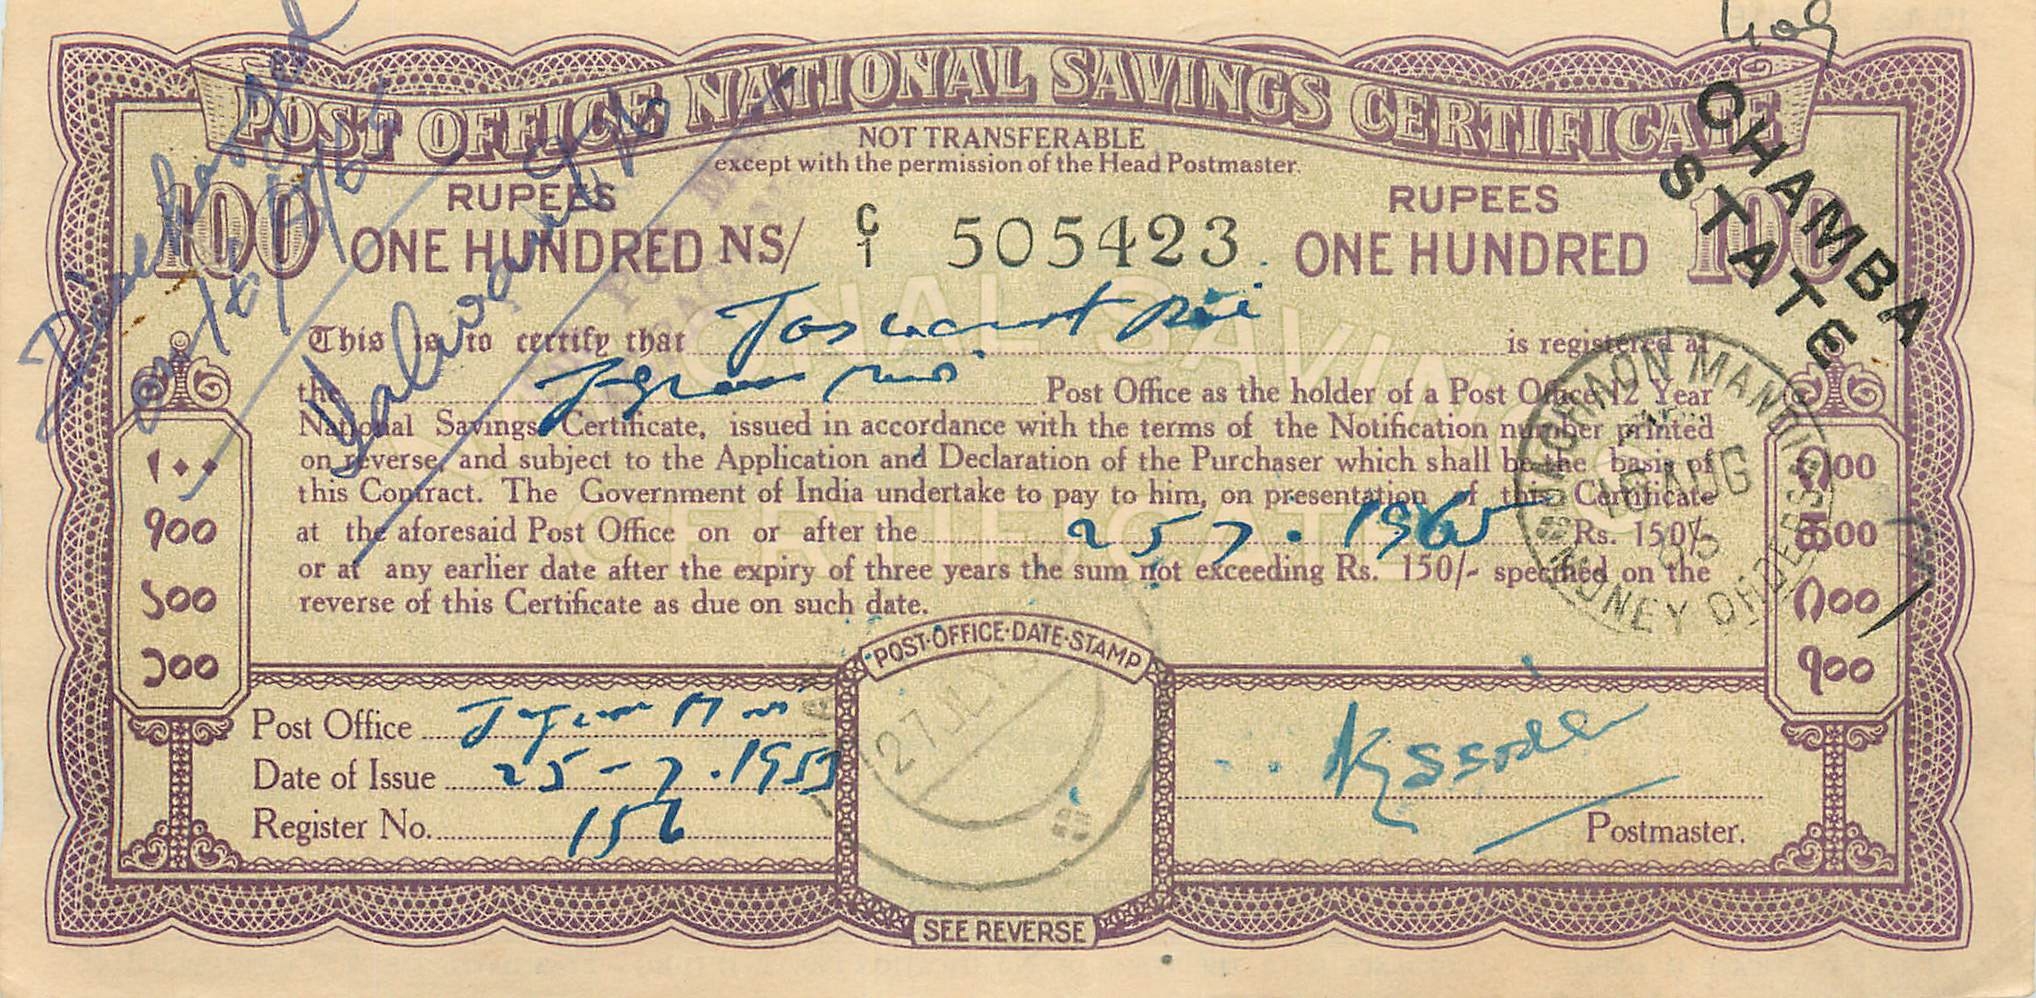 POST OFFICE NATIONAL SAVINGS CERTIFICATE
NOT TRANSFERABLE
except with the permission of the Head Postmaster.
100 RUPEES ONE HUNDRED NS/ C/1 505423 RUPEES ONE HUNDRED 100
CHAMBA
STATE
This is to certify that Jaswant Rai is registered at
the Post Office as the holder of a Post Office 12 Year
National Savings Certificate, issued in accordance with the terms of the Notification number printed
on reverse, and subject to the Application and Declaration of the Purchaser which shall be the basis of
this Contract. The Government of India undertake to pay to him, on presentation of this Certificate
at the aforesaid Post Office on or after the 25 7 . 1965 Rs. 150/-
or at any earlier date after the expiry of three years the sum not exceeding Rs. 150/- specified on the
reverse of this Certificate as due on such date.
١٠٠
१००
POST·OFFICE·DATE·STAMP
27 JULY
Post Office
Date of Issue 25-7.1953
Register No. 156
Postmaster.
SEE REVERSE
MANDI
16 AUG
65
MONEY ORDER